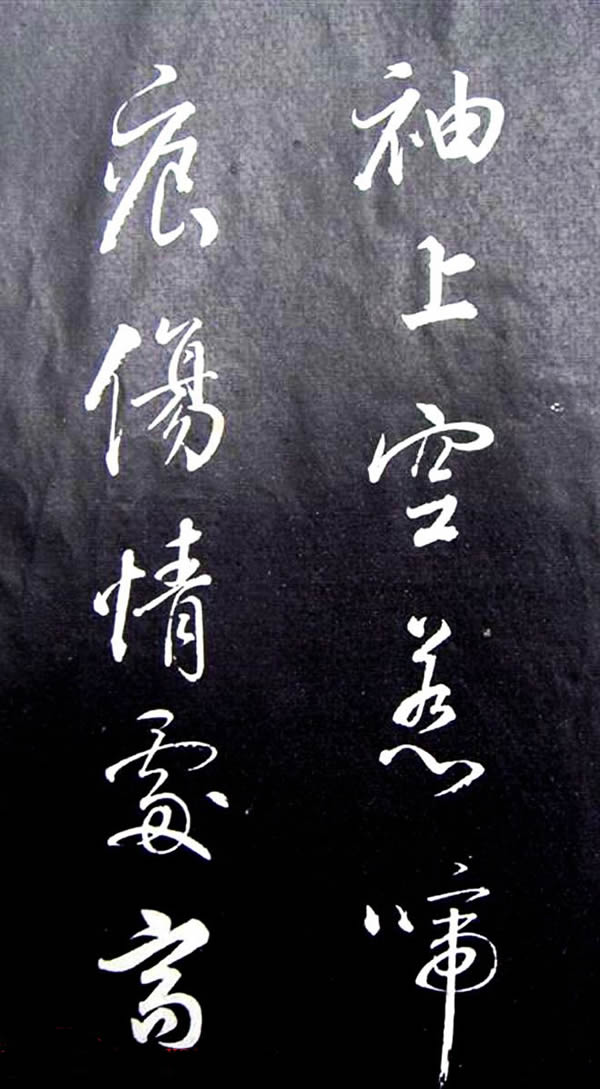 袖上空惹啼
痕傷情處高